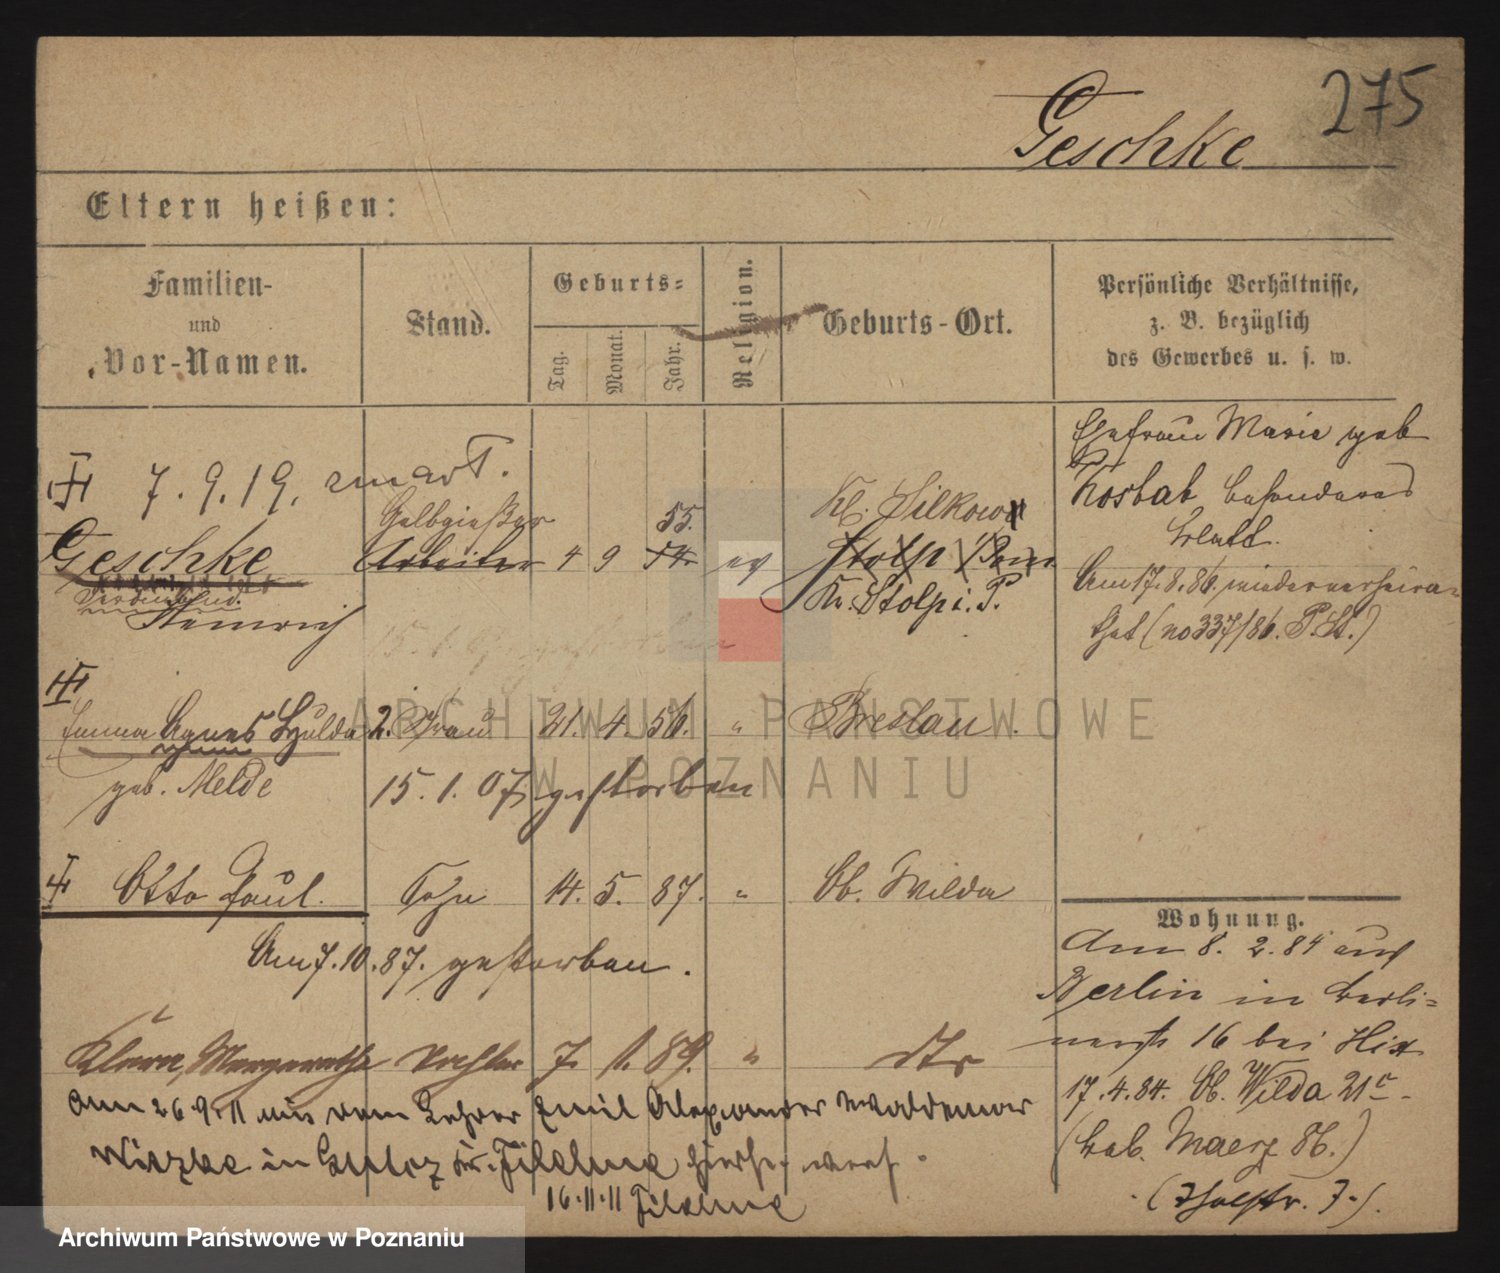 275
Geschke
Eltern heißen:
Familien-
und
Vor-Namen.
Stand.
Geburts-
Tag.
Monat.
Jahr.
Religion.
Geburts-Ort.
Persönliche Verhältnisse,
z. B. bezüglich
des Gewerbes u. s. w.
7.9.19.
Geschke
Heinrich
Gelbgießer
Arbeiter
4 9 54
55.
ev
Kl. Silkow
Stolp i/Pom
Kr. Stolp i. P.
Ehefrau Marie geb
Kosbab besonderes
Blatt.
Am 17.8.86. wiederverheira-
thet (no 337/86. P.St.)
Emma Agnes Hulda
geb. Melde
2. Frau
21. 4. 56. " Breslau.
15.1.07 gestorben
Otto Paul. Sohn 14. 5. 87. " Ob. Wilda
Am 7.10.87. gestorben.
Klara, Margarethe Tochter 7. 1. 89. " dto
am 26.9.11 mit dem Lehrer Emil Alexander Waldemar
Witzke in Kr. Filehne
16.11.11 Filehne
Wohnung.
Am 8. 2. 84 aus
Berlin in Berli-
nerst 16 bei
17.4.84. Ob. Wilda 21
(Maerz 86.)
(Thalstr. 7.).
ARCHIWUM PAŃSTWOWE
W POZNANIU
Archiwum Państwowe w Poznaniu